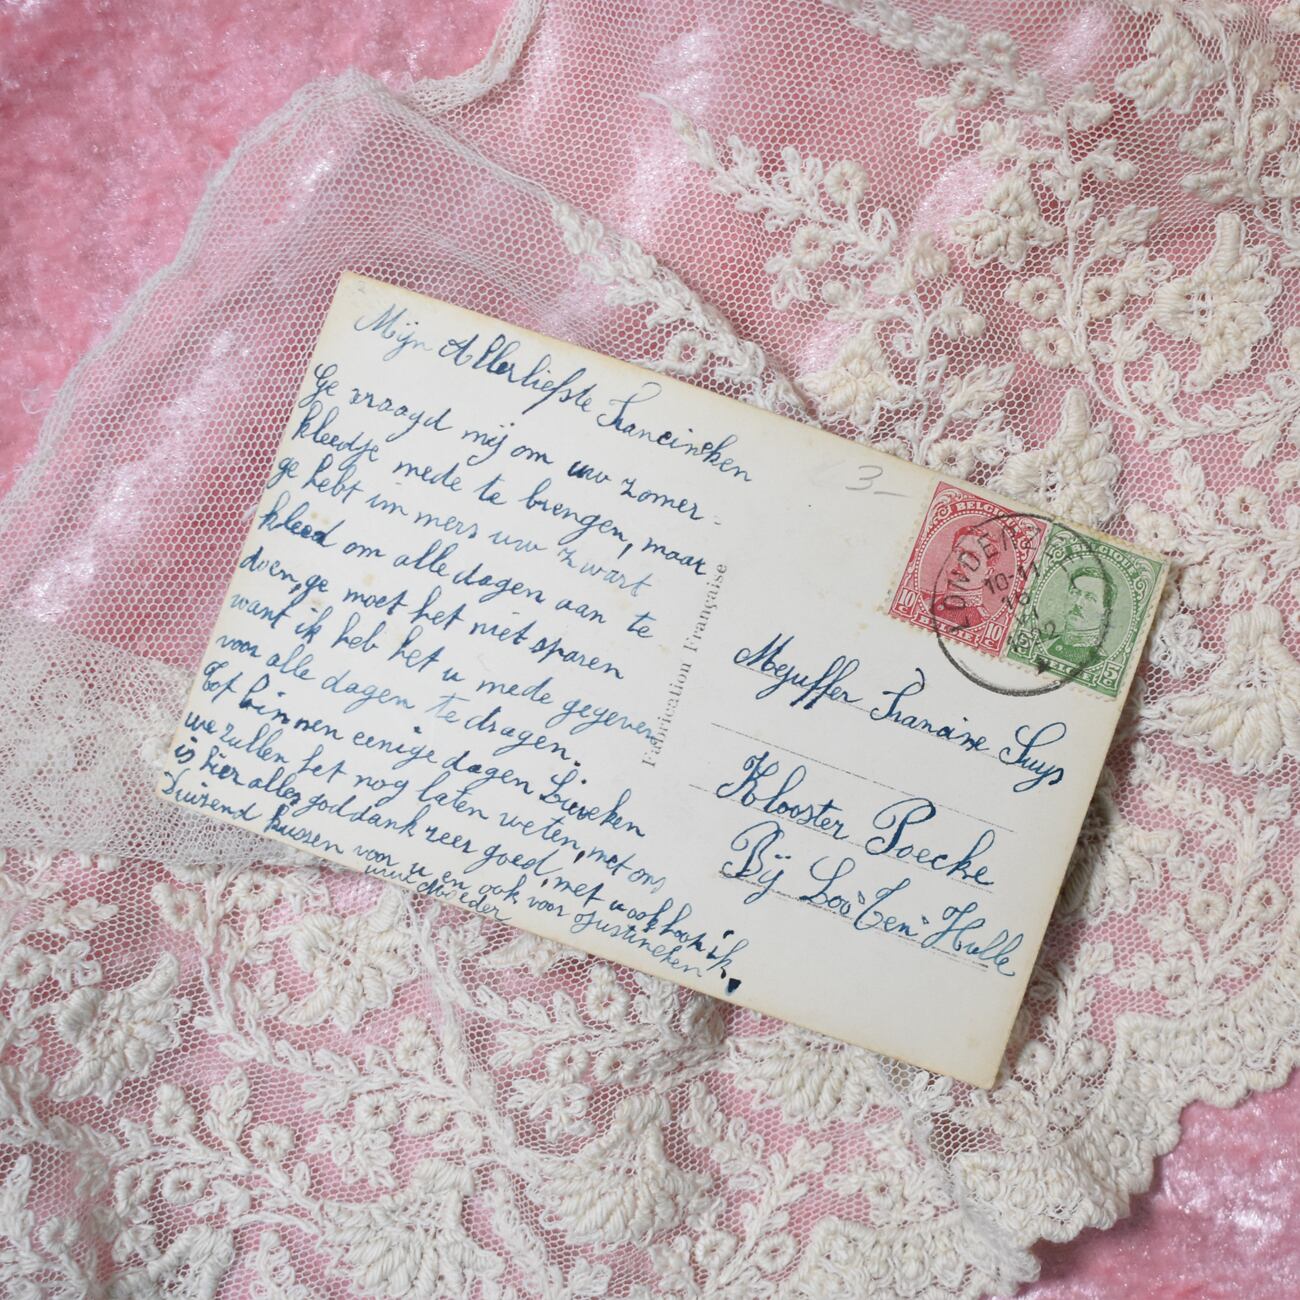 Mijn Allerliefste Francineken
Ge vraagd mij om uw zomer-
kleedje mede te brengen, maar
ge hebt immers uw zwart
kleed om alle dagen aan te
doen, ge moet het niet sparen
want ik heb het u mede gegeven
voor alle dagen te dragen.
Tot binnen eenige dagen Lieveken
we zullen het nog laten weten, met ons
is hier alles goddank zeer goed, met u ook hoop ik
Duizend kussen voor u en ook voor Justineken
uwe Moeder
Fabrication Française
3-
BELGIQUE
10 c 10 c
BELGIE
BELGIQUE
5 5 c
BELGIE
10-11
Mejuffer Francine Suys
Klooster Poecke
Bij Loo-Ten-Hulle